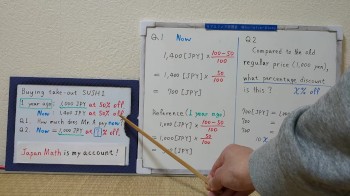 Buying take-out SUSHI
1 year ago: 1,000 JPY at 50% off
Now 1,400 JPY at 50% off
Q1. How much does Mr. A pay now
Q2. Now = 1,000 JPY at ?% off.
Japan Math is my account!
Q.1 Now
1,400 [JPY] × 100-50/100
= 1,400 [JPY] × 50/100
= 700 [JPY]
Reference (1 year ago)
1,000 [JPY] × 100-50/100
= 1,000 [JPY] × 50/100
= 500
Q2
Compared to the old
regular price (1,000 yen),
what percentage discount
is this? X% off
700 [JPY] = 1,000
700 =
700 = 100
10X